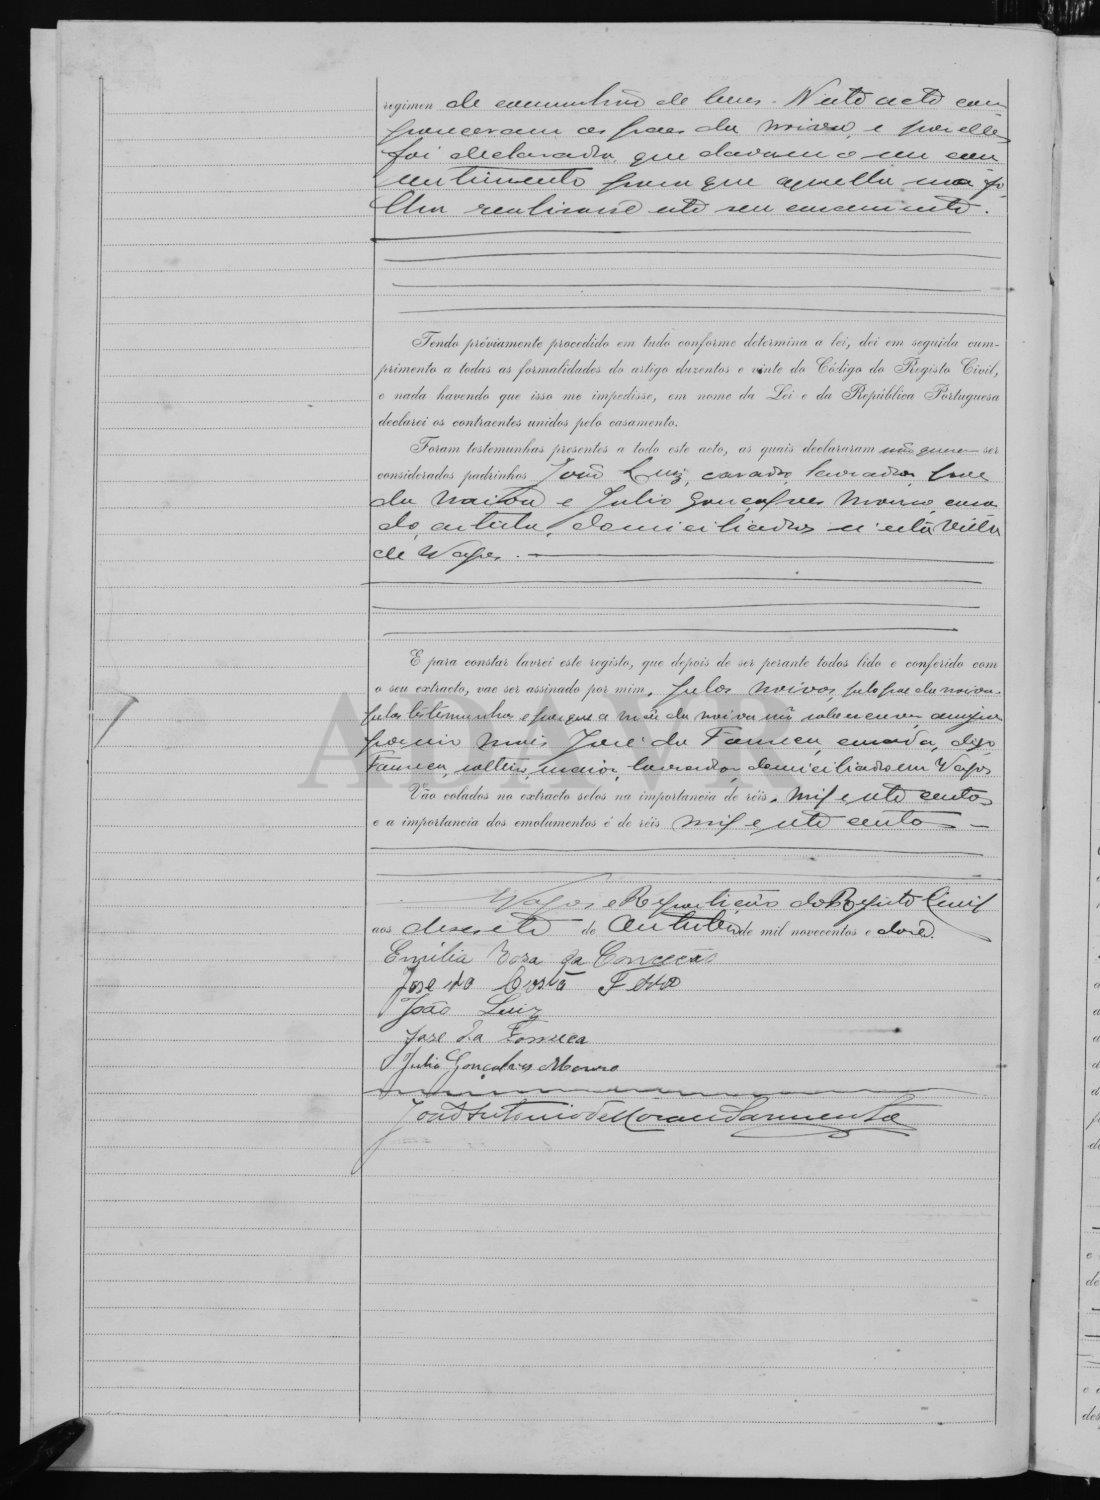 regimen de communhão de bens. Neste acto com
pareceram os paes da noiva, e por elles
foi declarado que davam o seu con
sentimento para que aquella sua fi
lha realisasse este seu casamento.
Tendo préviamente procedido em tudo conforme determina a lei, dei em seguida cum-
primento a todas as formalidades do artigo duzentos e vinte do Código do Registo Civil,
e nada havendo que isso me impedisse, em nome da Lei e da República Portuguesa
declarei os contraentes unidos pelo casamento.
Foram testemunhas presentes a todo este acto, as quais declararam não querer ser
considerados padrinhos João Luiz, casado, lavrador,
da e Julio Gonçalves Mouro, casa
do, artista, domiciliados n'esta Villa
de Vagos.
E para constar lavrei este registo, que depois de ser perante todos lido e conferido com
o seu extracto, vae ser assinado por mim, pelos noivos, pelo pae da noiva,
pelas testemunhas e porque a mãe da noiva não sabe escrever, assigna
José da Fonseca, casado, digo
Fonseca, solteiro, maior, lavrador, domiciliado em Vagos
Vão colados no extracto selos na importancia de réis, mil e sete centos
e a importancia dos emolumentos é de réis mil e sete centos
Vagos e Repartição do Registo Civil
aos desesete de Outubro de mil novecentos e doze.
Emilia Rosa da Conceição
José da Costa
João Luiz
José da Fonseca
Julio Gonçalves Mouro
João Antonio de Moraes Sarmento
ADAVR